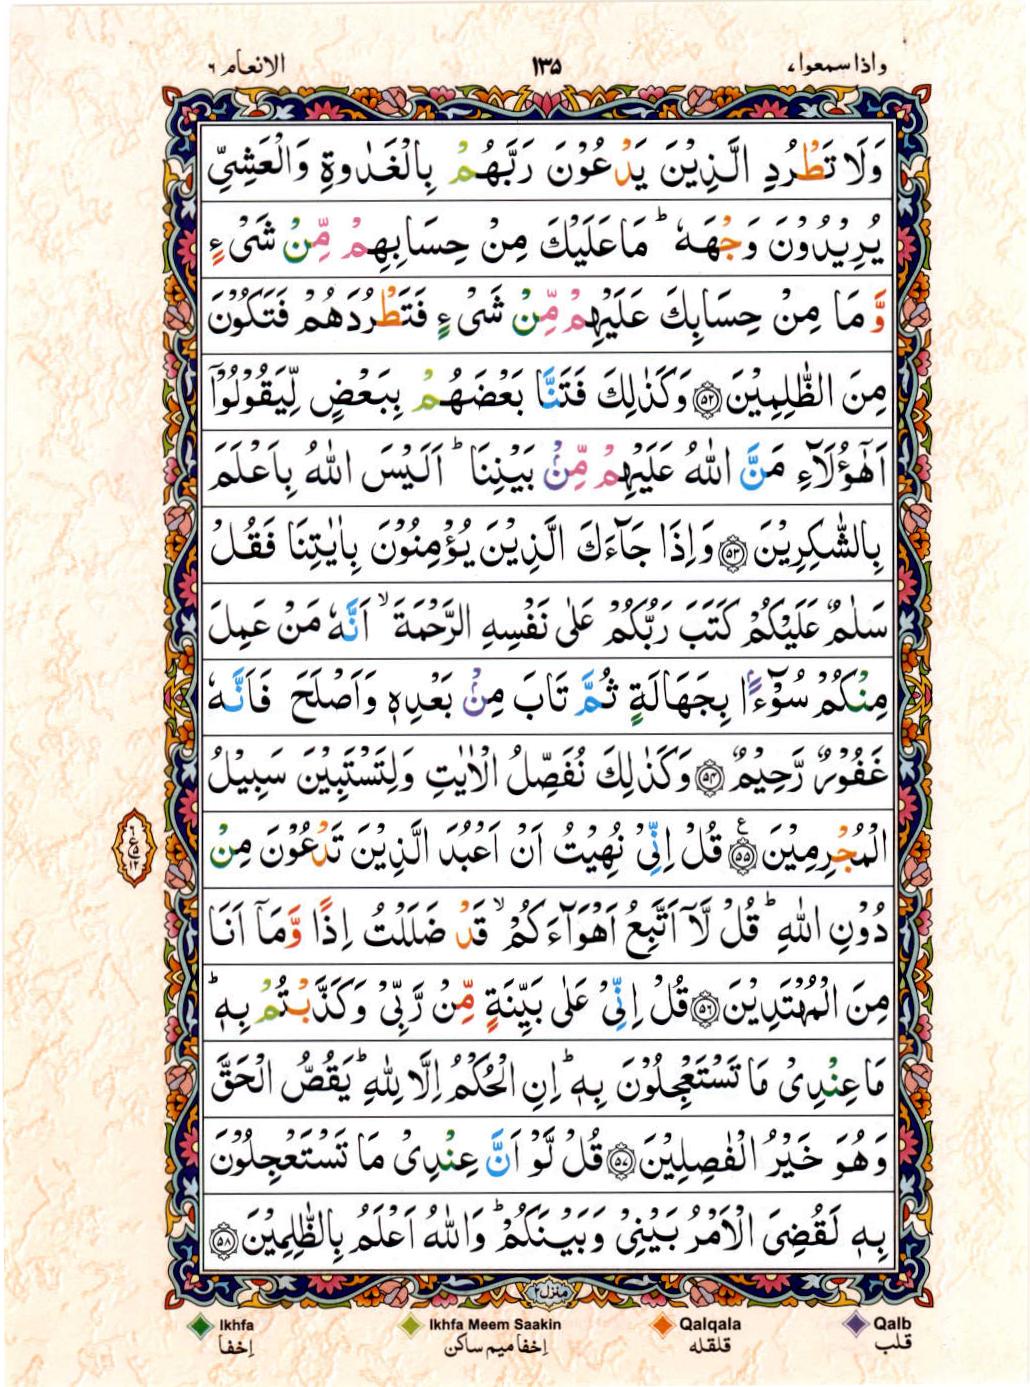 واذاسمعوا، ۱۳۵ الانعام ۶
وَلَا تَطْرُدِ الَّذِيْنَ يَدْعُوْنَ رَبَّهُمْ بِالْغَدٰوةِ وَالْعَشِيِّ
يُرِيْدُوْنَ وَجْهَهٗ ؕ مَا عَلَيْكَ مِنْ حِسَابِهِمْ مِّنْ شَىْءٍ
وَّ مَا مِنْ حِسَابِكَ عَلَيْهِمْ مِّنْ شَىْءٍ فَتَطْرُدَهُمْ فَتَكُوْنَ
مِنَ الظّٰلِمِيْنَ ۵۲ وَكَذٰلِكَ فَتَنَّا بَعْضَهُمْ بِبَعْضٍ لِّيَقُوْلُوْۤا
اَهٰٓؤُلَآءِ مَنَّ اللّٰهُ عَلَيْهِمْ مِّنْۢ بَيْنِنَا ؕ اَلَيْسَ اللّٰهُ بِاَعْلَمَ
بِالشّٰكِرِيْنَ ۵۳ وَاِذَا جَآءَكَ الَّذِيْنَ يُؤْمِنُوْنَ بِاٰيٰتِنَا فَقُلْ
سَلٰمٌ عَلَيْكُمْ كَتَبَ رَبُّكُمْ عَلٰى نَفْسِهِ الرَّحْمَةَ ۙ اَنَّهٗ مَنْ عَمِلَ
مِنْكُمْ سُوْٓءًۢا بِجَهَالَةٍ ثُمَّ تَابَ مِنْۢ بَعْدِهٖ وَاَصْلَحَ فَاَنَّهٗ
غَفُوْرٌ رَّحِيْمٌ ۵۴ وَكَذٰلِكَ نُفَصِّلُ الْاٰيٰتِ وَلِتَسْتَبِيْنَ سَبِيْلُ
الْمُجْرِمِيْنَ ۵۵ ع قُلْ اِنِّىْ نُهِيْتُ اَنْ اَعْبُدَ الَّذِيْنَ تَدْعُوْنَ مِنْ
دُوْنِ اللّٰهِ ؕ قُلْ لَّاۤ اَتَّبِعُ اَهْوَآءَكُمْ ۙ قَدْ ضَلَلْتُ اِذًا وَّمَاۤ اَنَا
مِنَ الْمُهْتَدِيْنَ ۵۶ قُلْ اِنِّىْ عَلٰى بَيِّنَةٍ مِّنْ رَّبِّىْ وَكَذَّبْتُمْ بِهٖ ؕ
مَا عِنْدِىْ مَا تَسْتَعْجِلُوْنَ بِهٖ ؕ اِنِ الْحُكْمُ اِلَّا لِلّٰهِ ؕ يَقُصُّ الْحَقَّ
وَهُوَ خَيْرُ الْفٰصِلِيْنَ ۵۷ قُلْ لَّوْ اَنَّ عِنْدِىْ مَا تَسْتَعْجِلُوْنَ
بِهٖ لَقُضِىَ الْاَمْرُ بَيْنِىْ وَبَيْنَكُمْ ؕ وَاللّٰهُ اَعْلَمُ بِالظّٰلِمِيْنَ ۵۸
منزل۲
Ikhfa Ikhfa Meem Saakin Qalqala Qalb
إخفا إخفا ميم ساكن قلقله قلب